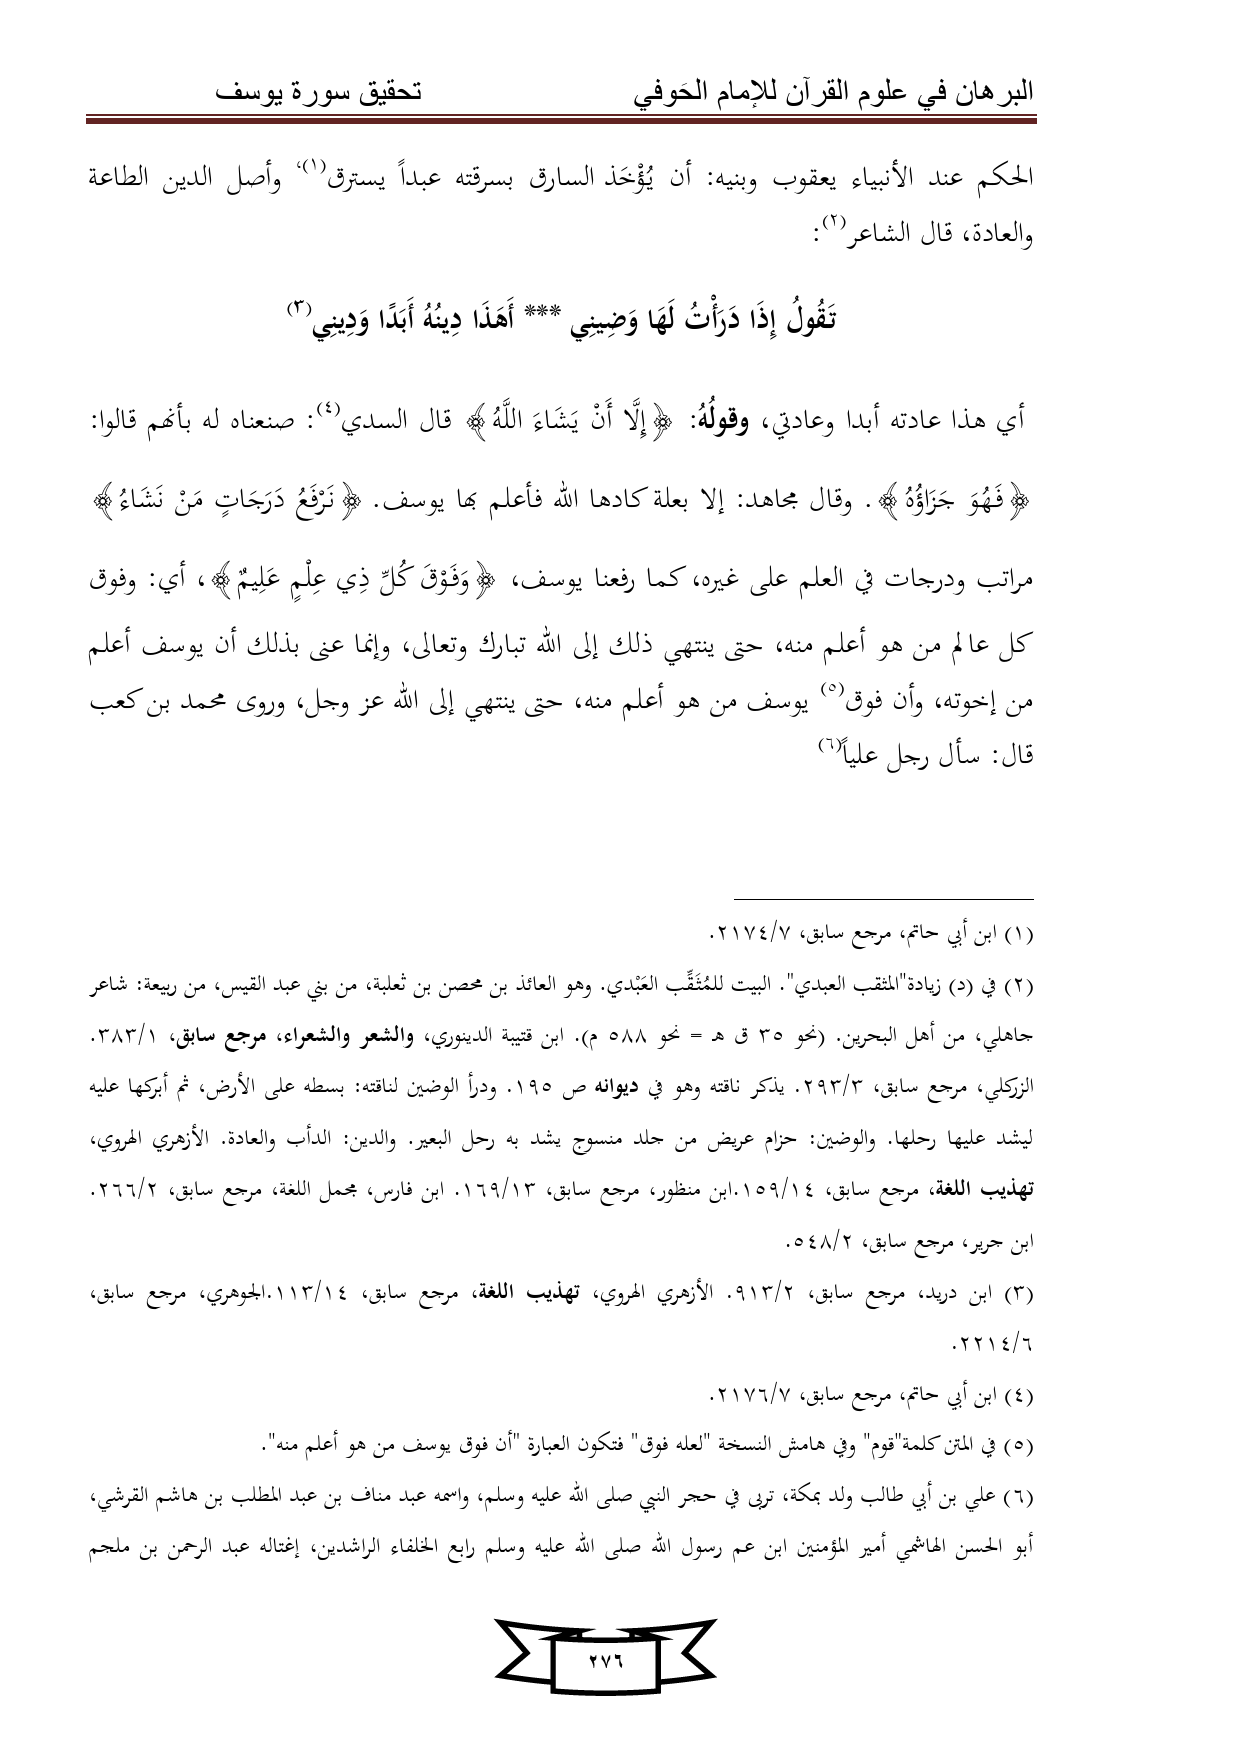 البرهان في علوم القرآن للإمام الحَوفي تحقيق سورة يوسف
الحكم عند الأنبياء يعقوب وبنيه: أن يُؤْخَذ السارق بسرقته عبداً يسترق(١)، وأصل الدين الطاعة
والعادة، قال الشاعر(٢):
تَقُولُ إِذَا دَرَأْتُ لَهَا وَضِينِي *** أَهَذَا دِينُهُ أَبَدًا وَدِينِي(٣)
أي هذا عادته أبدا وعادتي، وقولُهُ: ﴿إِلَّا أَنْ يَشَاءَ اللَّهُ﴾ قال السدي(٤): صنعناه له بأنهم قالوا:
﴿فَهُوَ جَزَاؤُهُ﴾. وقال مجاهد: إلا بعلة كادها الله فأعلم بها يوسف. ﴿نَرْفَعُ دَرَجَاتٍ مَنْ نَشَاءُ﴾
مراتب ودرجات في العلم على غيره، كما رفعنا يوسف، ﴿وَفَوْقَ كُلِّ ذِي عِلْمٍ عَلِيمٌ﴾، أي: وفوق
كل عالم من هو أعلم منه، حتى ينتهي ذلك إلى الله تبارك وتعالى، وإنما عنى بذلك أن يوسف أعلم
من إخوته، وأن فوق(٥) يوسف من هو أعلم منه، حتى ينتهي إلى الله عز وجل، وروى محمد بن كعب
قال: سأل رجل علياً(٦)
(١) ابن أبي حاتم، مرجع سابق، ٢١٧٤/٧.
(٢) في (د) زيادة"المثقب العبدي". البيت للمُثَقِّب العَبْدي. وهو العائذ بن محصن بن ثعلبة، من بني عبد القيس، من ربيعة: شاعر
جاهلي، من أهل البحرين. (نحو ٣٥ ق هـ = نحو ٥٨٨ م). ابن قتيبة الدينوري، والشعر والشعراء، مرجع سابق، ٣٨٣/١.
الزركلي، مرجع سابق، ٢٩٣/٣. يذكر ناقته وهو في ديوانه ص ١٩٥. ودرأ الوضين لناقته: بسطه على الأرض، ثم أبركها عليه
ليشد عليها رحلها. والوضين: حزام عريض من جلد منسوج يشد به رحل البعير. والدين: الدأب والعادة. الأزهري الهروي،
تهذيب اللغة، مرجع سابق، ١٥٩/١٤.ابن منظور، مرجع سابق، ١٦٩/١٣. ابن فارس، مجمل اللغة، مرجع سابق، ٢٦٦/٢.
ابن جرير، مرجع سابق، ٥٤٨/٢.
(٣) ابن دريد، مرجع سابق، ٩١٣/٢. الأزهري الهروي، تهذيب اللغة، مرجع سابق، ١١٣/١٤.الجوهري، مرجع سابق،
٢٢١٤/٦.
(٤) ابن أبي حاتم، مرجع سابق، ٢١٧٦/٧.
(٥) في المتن كلمة"قوم" وفي هامش النسخة "لعله فوق" فتكون العبارة "أن فوق يوسف من هو أعلم منه".
(٦) علي بن أبي طالب ولد بمكة، تربى في حجر النبي صلى الله عليه وسلم، واسمه عبد مناف بن عبد المطلب بن هاشم القرشي،
أبو الحسن الهاشمي أمير المؤمنين ابن عم رسول الله صلى الله عليه وسلم رابع الخلفاء الراشدين، إغتاله عبد الرحمن بن ملجم
٢٧٦